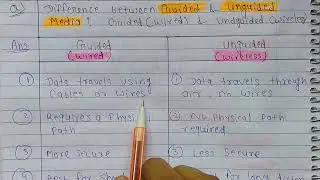 Q) Difference between Guided & Unguided
Media? Guided (Wired) & Unguided (Wireless)
Ans Guided (Wired) Unguided (Wireless)
① Data travels using Cables or Wires
① Data travels through air, no wires
② Requires a Physical Path
② No Physical Path required
③ More Secure
③ Less Secure